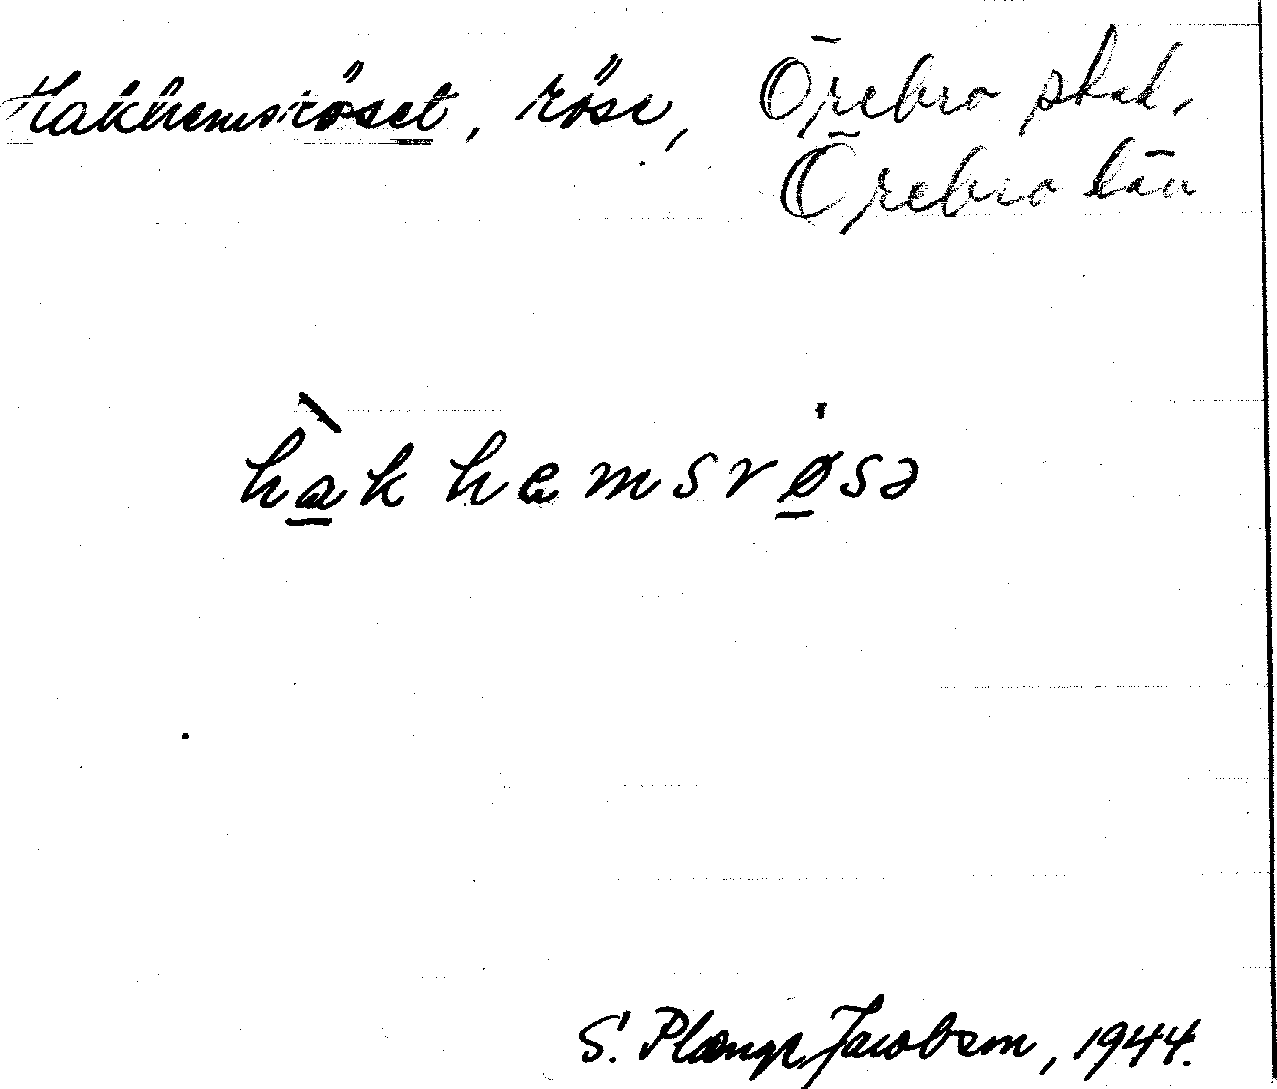 Hakhemsröset, röse, Örebro stad,
Örebro län
hàk hemsrøsə
S. Plænge Jacobson, 1944.